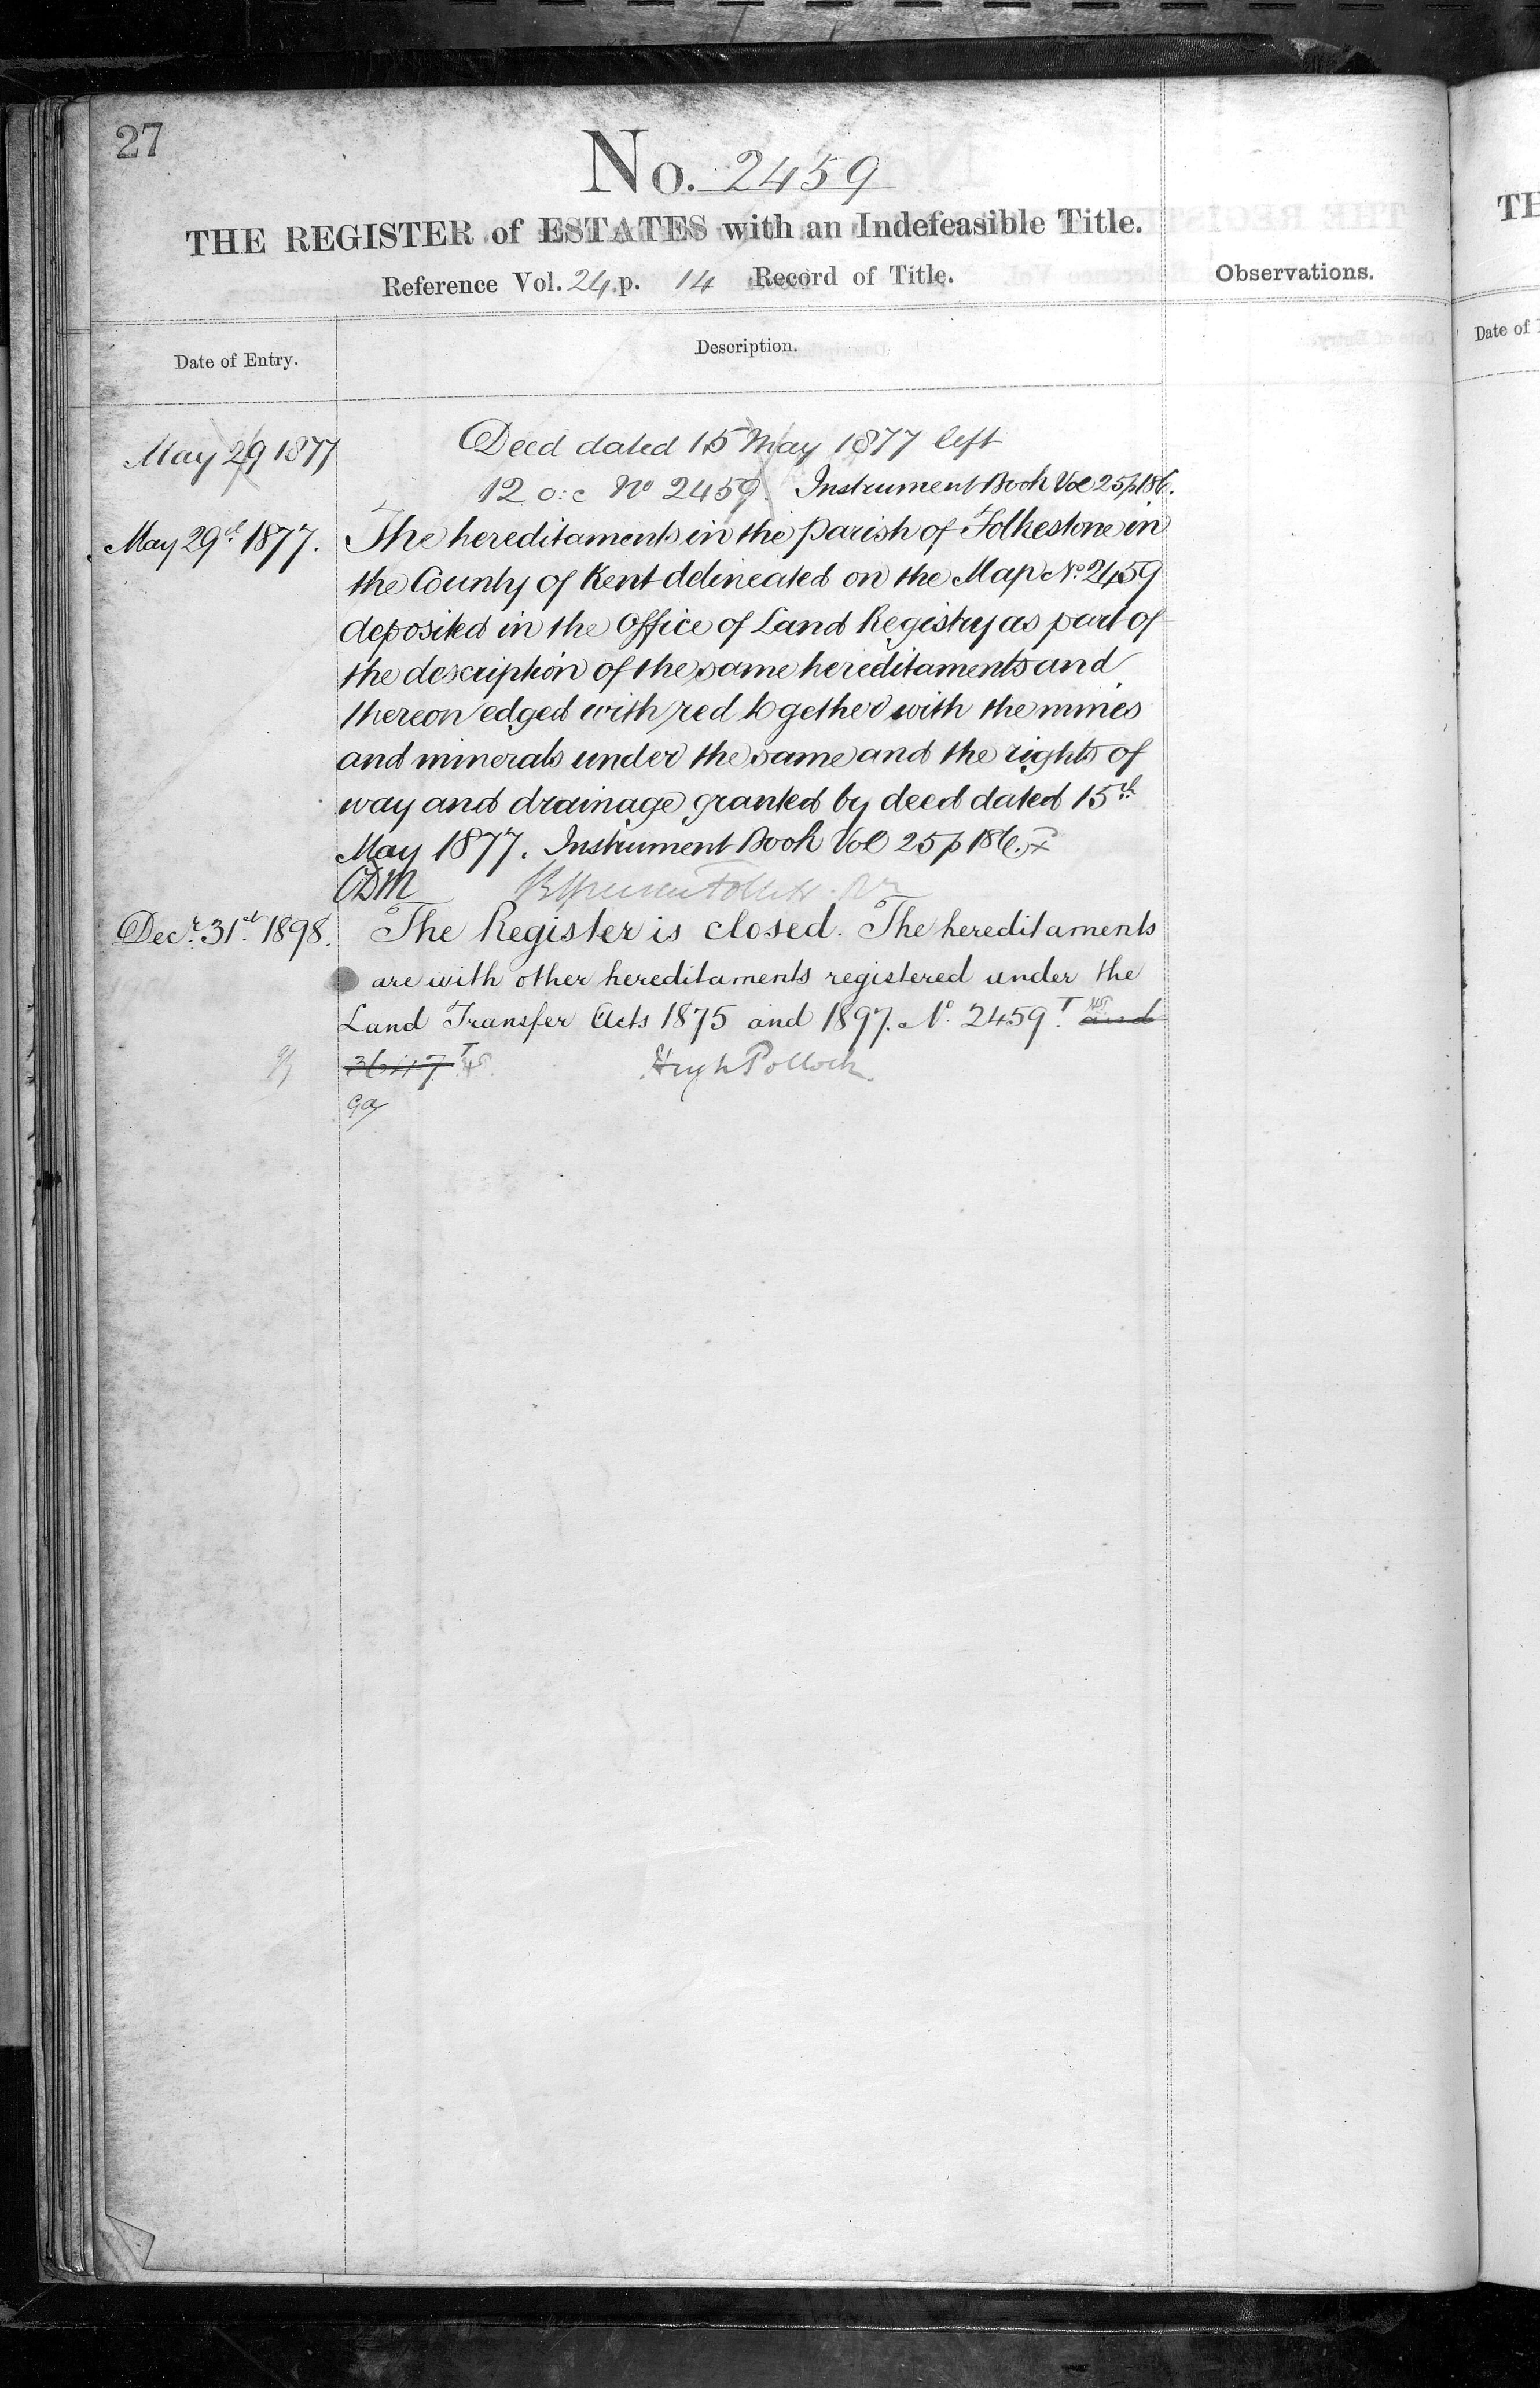 27
No. 2459
THE REGISTER of ESTATES with an Indefeasible Title.
Reference Vol. 24 p. 14 Record of Title.
Observations.
Date of Entry.
Description.
May 29 1877
Deed dated 15 May 1877 left
12 o:c No 2459. Instrument Book Vol 25 p 186.
May 29th 1877.
The hereditaments in the Parish of Folkestone in
the County of Kent delineated on the Map No. 2459
deposited in the Office of Land Registry as part of
the description of the same hereditaments and
thereon edged with red together with the mines
and minerals under the same and the rights of
way and drainage granted by deed dated 15th
May 1877. Instrument Book Vol 25 p 186.
CDM
Decr. 31st. 1898.
The Register is closed. The hereditaments
are with other hereditaments registered under the
Land Transfer Acts 1875 and 1897. No. 2459 T. and
3647 T
Hugh Pollock
Ga
TH
Date of